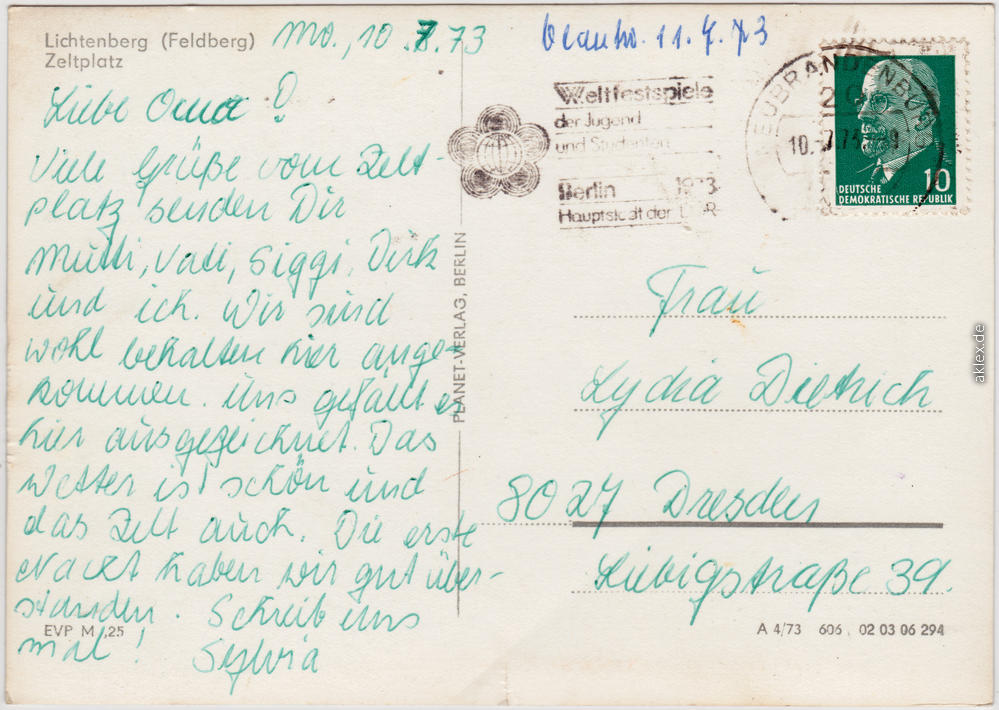 Lichtenberg (Feldberg)
Zeltplatz
Mo., 10.7.73
Liebe Oma!
Viele Grüße vom Zelt-
platz senden Dir
Mutti, Vati, Siggi, Dirk
und ich. Wir sind
wohl behalten hier ange-
kommen. Uns gefällt es
hier ausgezeichnet. Das
Wetter ist schön und
das Zelt auch. Die erste
Nacht haben wir gut über-
standen. Schreib uns
mal! Sylvia
EVP M ,25
PLANET-VERLAG, BERLIN
11.7.73
Weltfestspiele
der Jugend
und Studenten
Berlin 1973
Hauptstadt der DDR
NEUBRANDENBURG
20
10.-7.73
10
DEUTSCHE
DEMOKRATISCHE REPUBLIK
Frau
Lydia Dietrich
8027 Dresden
Liebigstraße 39.
A 4/73 606 02 03 06 294
aklex.de